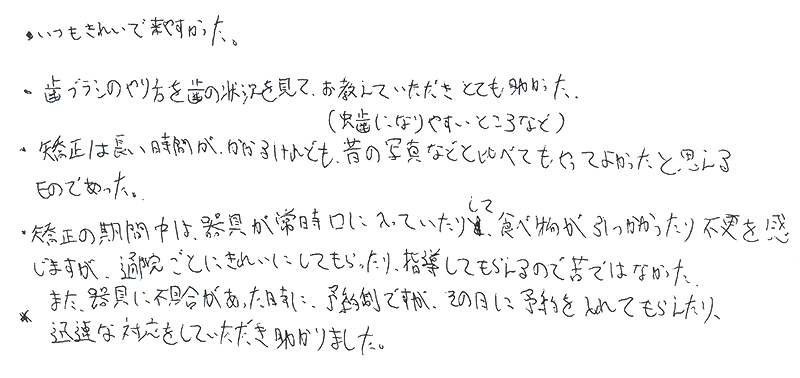 ・いつもきれいで来やすかった。
・歯ブラシのやり方を歯の状況を見て、お教えていただきとても助かった。
(虫歯になりやすいところなど)
・矯正は長い時間が、かかるけれども、昔の写真などと比べてもやってよかったと思える
ものであった。
・矯正の期間中は、器具が常時口に入っていたりして、食べ物が引っかかったり不便を感
じますが、通院ごとにきれいにしてもらったり、指導してもらえるので苦ではなかった。
また、器具に不具合があった時に、予約制ですが、その日に予約を入れてもらえたり、
* 迅速な対応をしていただき助かりました。